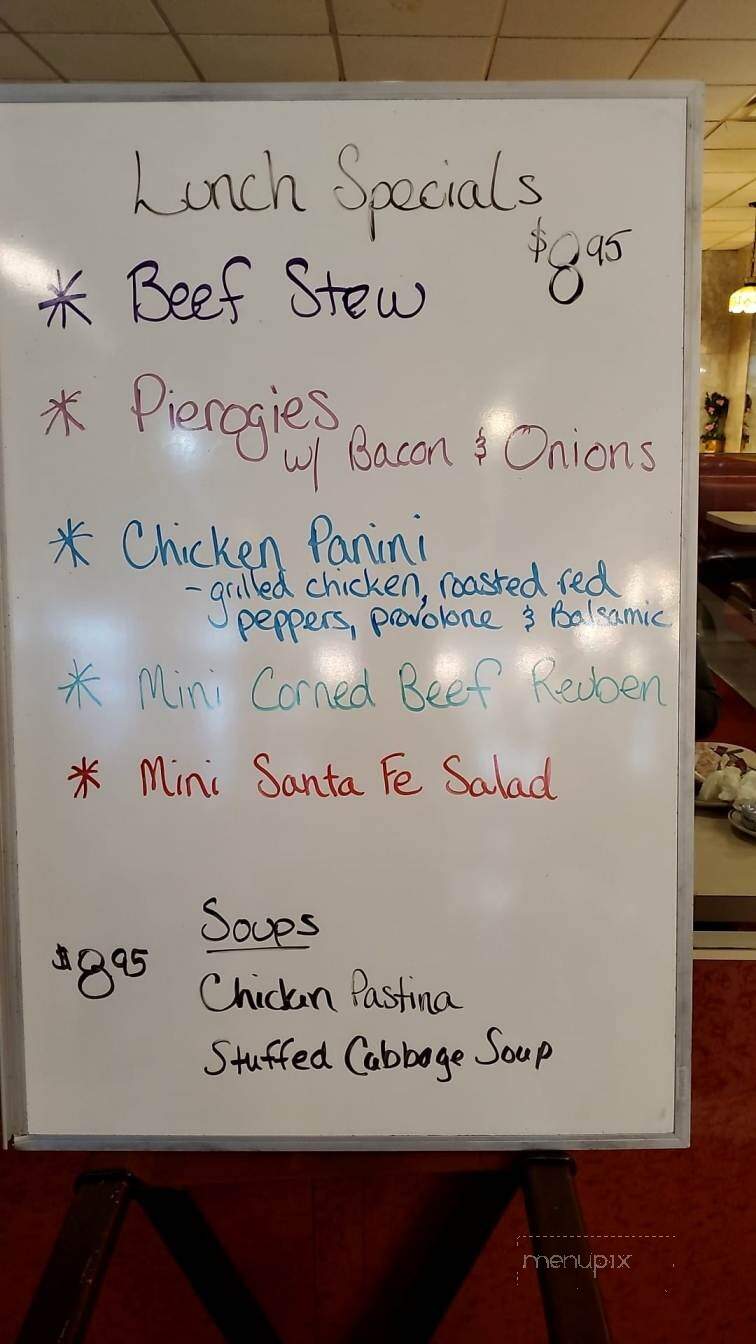 Lunch Specials
$8.95
* Beef Stew
* Pierogies
w/ Bacon & Onions
* Chicken Panini
- grilled chicken, roasted red
peppers, provolone & Balsamic
* Mini Corned Beef Reuben
* Mini Santa Fe Salad
Soups
$8.95
Chicken Pastina
Stuffed Cabbage Soup
menupix